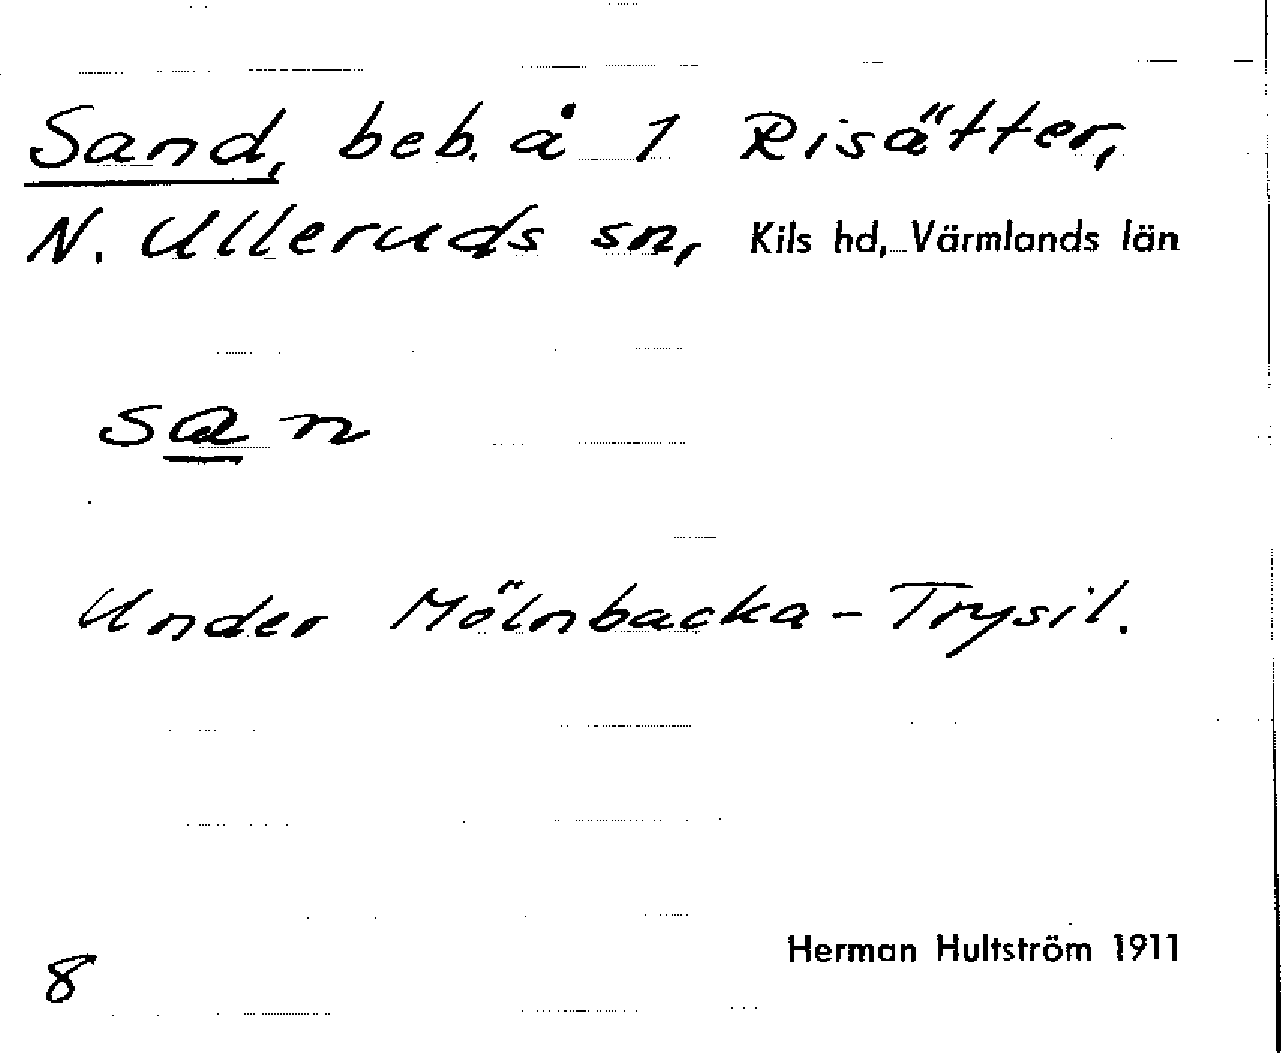 Sand, beb. å 1 Risätter,
N. Ulleruds sn, Kils hd, Värmlands län
san
Under Mölnbacka-Trysil.
Herman Hultström 1911
8